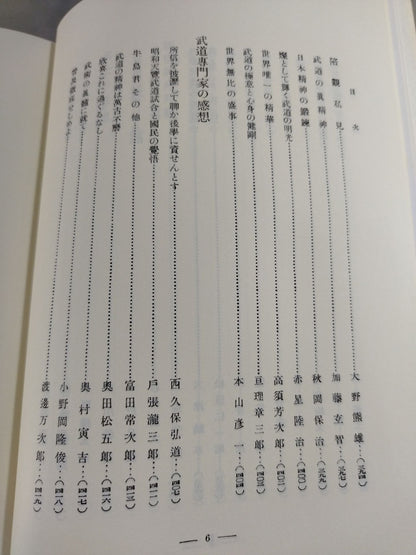 目次
陪觀私見……………大野熊雄…(三九四)
武道の眞精神……………加藤玄智…(三九七)
日本精神の鍛錬……………秋岡保治…(三九九)
燦として輝く武道の明光……………赤星陸治…(四〇〇)
世界唯一の精華……………高須芳次郎…(四〇二)
武道の極意と心身の健剛……………亘理章三郎…(四〇三)
世界無比の盛事……………本山彦一…(四〇四)
武道專門家の感想
所信を披瀝して聊か後學に資せんとす……………西久保弘道…(四〇七)
昭和天覽武道試合と國民の覺悟……………戶張瀧三郎…(四一一)
牛島君その他……………富田常次郎…(四一三)
武道の精神は萬古不磨……………奥田松五郎…(四一六)
欣喜これに過ぐるなし……………奥村寅吉…(四一七)
武術の眞髓に就て……………小野岡隆俊…(四一八)
せしめよ……………渡邊万次郎…(四一九)
— 6 —